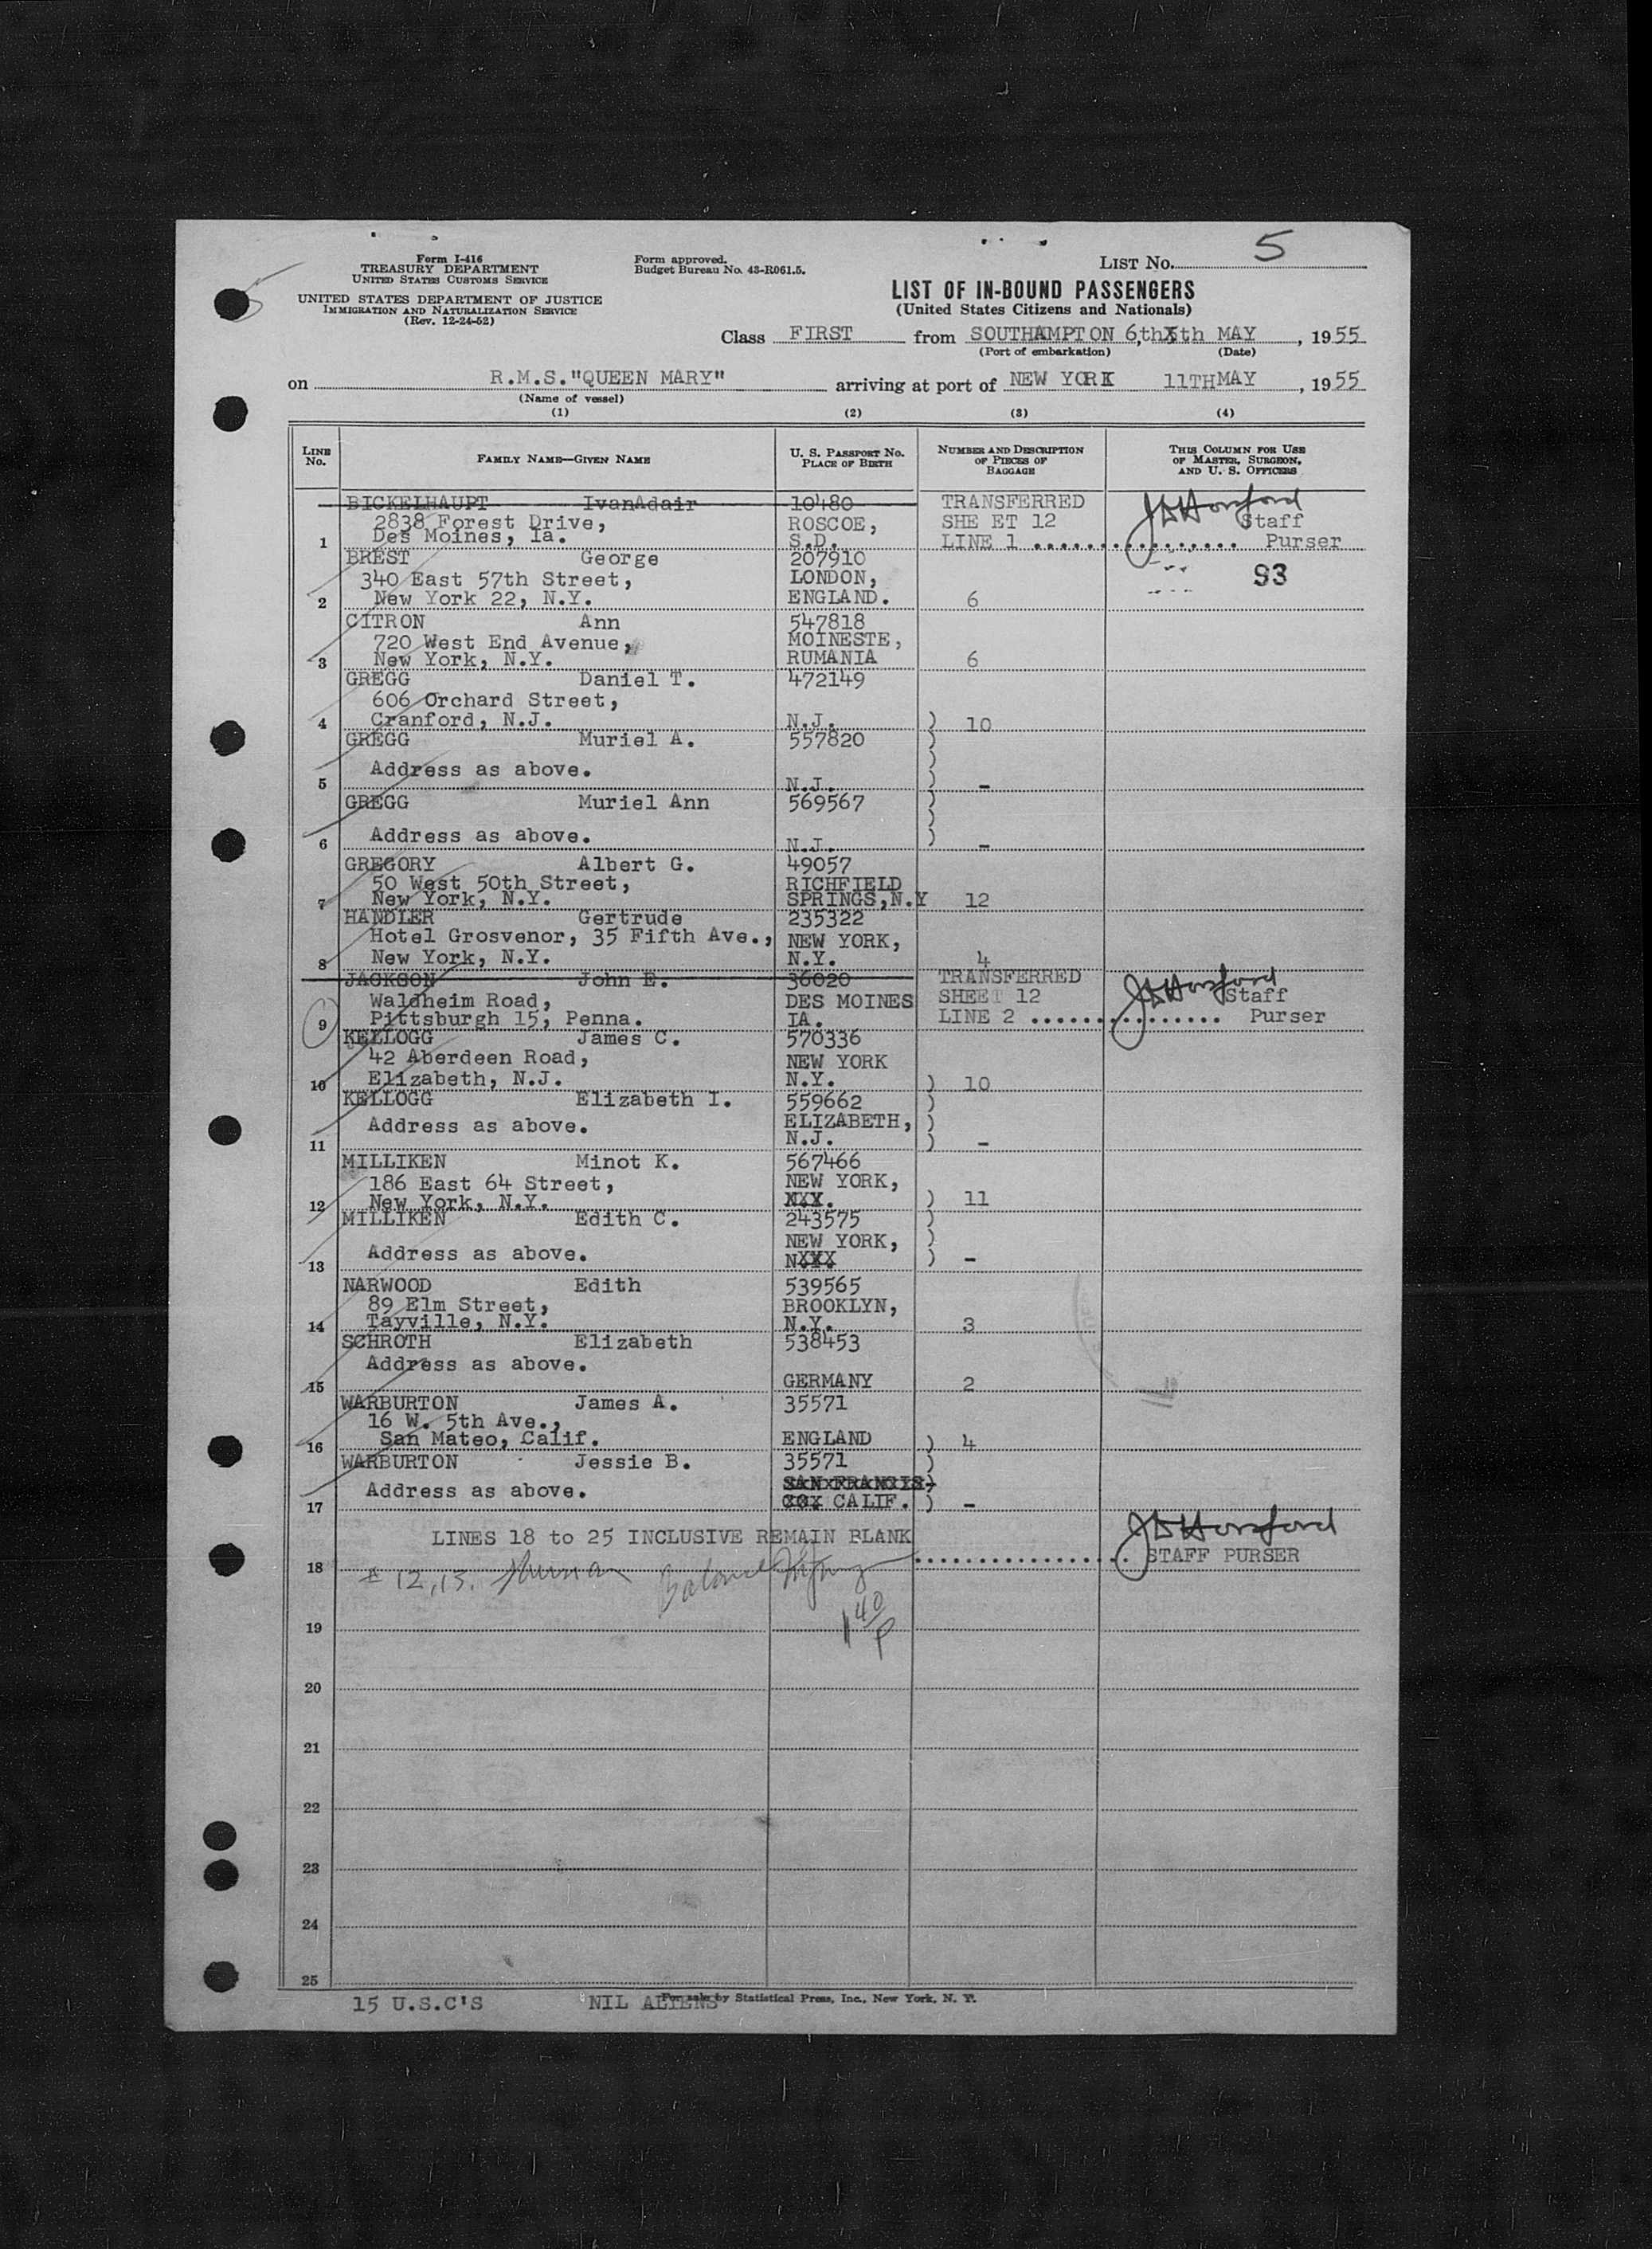 Form I-416
TREASURY DEPARTMENT
UNITED STATES CUSTOMS SERVICE
UNITED STATES DEPARTMENT OF JUSTICE
IMMIGRATION AND NATURALIZATION SERVICE
(Rev. 12-24-52)
Form approved.
Budget Bureau No. 43-R061.5.
LIST NO. 5
LIST OF IN-BOUND PASSENGERS
(United States Citizens and Nationals)
Class FIRST from SOUTHAMPTON 6th, MAY, 1955
(Port of embarkation) (Date)
on R.M.S."QUEEN MARY" arriving at port of NEW YORK 11TH MAY, 1955
(Name of vessel)
(1) (2) (3) (4)
LINE No. FAMILY NAME—GIVEN NAME U. S. PASSPORT NO. PLACE OF BIRTH NUMBER AND DESCRIPTION OF PIECES OF BAGGAGE THIS COLUMN FOR USE OF MASTER, SURGEON, AND U. S. OFFICERS
BICKELHAUPT IvanAdair 10480 TRANSFERRED
2838 Forest Drive, ROSCOE, SHE ET 12 Staff
1 Des Moines, Ia. S.D. LINE 1 ................ Purser
BREST George 207910
340 East 57th Street, LONDON, 93
2 New York 22, N.Y. ENGLAND. 6
CITRON Ann 547818
720 West End Avenue, MOINESTE,
3 New York, N.Y. RUMANIA 6
GREGG Daniel T. 472149
606 Orchard Street,
4 Cranford, N.J. N.J. ) 10
GREGG Muriel A. 557820 )
Address as above. )
5 N.J. ) -
GREGG Muriel Ann 569567 )
Address as above. )
6 N.J. ) -
GREGORY Albert G. 49057
50 West 50th Street, RICHFIELD
7 New York, N.Y. SPRINGS,N.Y 12
HANDLER Gertrude 235322
Hotel Grosvenor, 35 Fifth Ave., NEW YORK,
8 New York, N.Y. N.Y. 4
JACKSON John E. 36020 TRANSFERRED
Waldheim Road, DES MOINES SHEET 12 Staff
9 Pittsburgh 15, Penna. IA. LINE 2 ............... Purser
KELLOGG James C. 570336
42 Aberdeen Road, NEW YORK
10 Elizabeth, N.J. N.Y. ) 10
KELLOGG Elizabeth I. 559662 )
Address as above. ELIZABETH, )
11 N.J. ) -
MILLIKEN Minot K. 567466
186 East 64 Street, NEW YORK,
12 New York, N.Y. NXX. ) 11
MILLIKEN Edith C. 243575 )
NEW YORK, )
13 Address as above. NXXX ) -
NARWOOD Edith 539565
89 Elm Street, BROOKLYN,
14 Tayville, N.Y. N.Y. 3
SCHROTH Elizabeth 538453
Address as above.
15 GERMANY 2
WARBURTON James A. 35571
16 W. 5th Ave.,
16 San Mateo, Calif. ENGLAND ) 4
WARBURTON Jessie B. 35571 )
Address as above. SAN FRANCIS- )
17 CALIF. ) -
LINES 18 to 25 INCLUSIVE REMAIN BLANK
18 ................ STAFF PURSER
# 12, 13.
19
20
21
22
23
24
25
15 U.S.C'S NIL ALIENS For sale by Statistical Press, Inc., New York, N. Y.